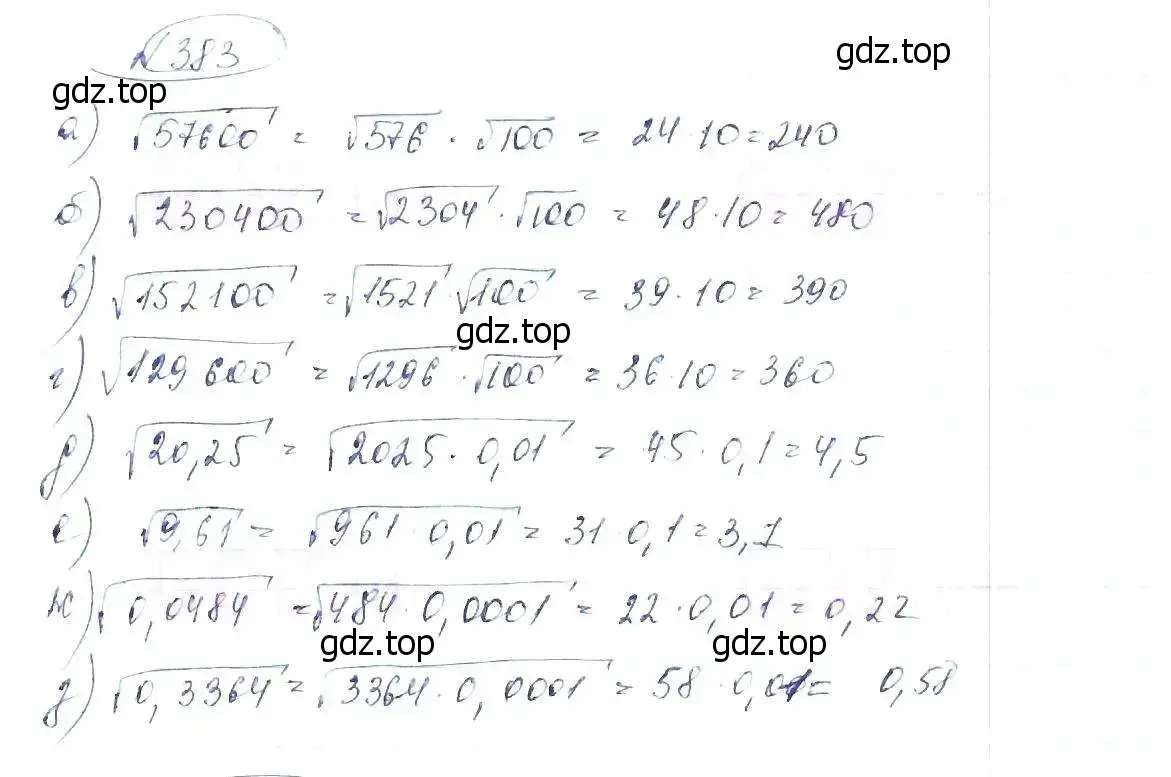 № 383
gdz.top
gdz.top
а) √57600 = √576 · √100 = 24 · 10 = 240
б) √230400 = √2304 · √100 = 48 · 10 = 480
в) √152100 = √1521 · √100 = 39 · 10 = 390
gdz.top
г) √129600 = √1296 · √100 = 36 · 10 = 360
д) √20,25 = √2025 · 0,01 = 45 · 0,1 = 4,5
е) √9,61 = √961 · 0,01 = 31 · 0,1 = 3,1
ж) √0,0484 = √484 · 0,0001 = 22 · 0,01 = 0,22
gdz.top
gdz.top
з) √0,3364 = √3364 · 0,0001 = 58 · 0,01 = 0,58